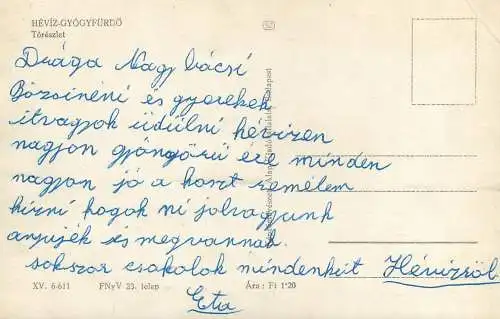 HÉVÍZ-GYÓGYFÜRDŐ
Tórészlet
Drága Nagy bácsi
Bözsinéni és gyerekek
itvagyok üdülni hévizen
nagyon gyöngörü ere minden
nagyon jó a koszt remélem
hízni fogok mi jolvagyunk
anyujék is megvannak
sokszor csokolok mindenkit Hévizröl
Eta
XV. 6-611 FNyV 23. telep Ára: Ft 1·20